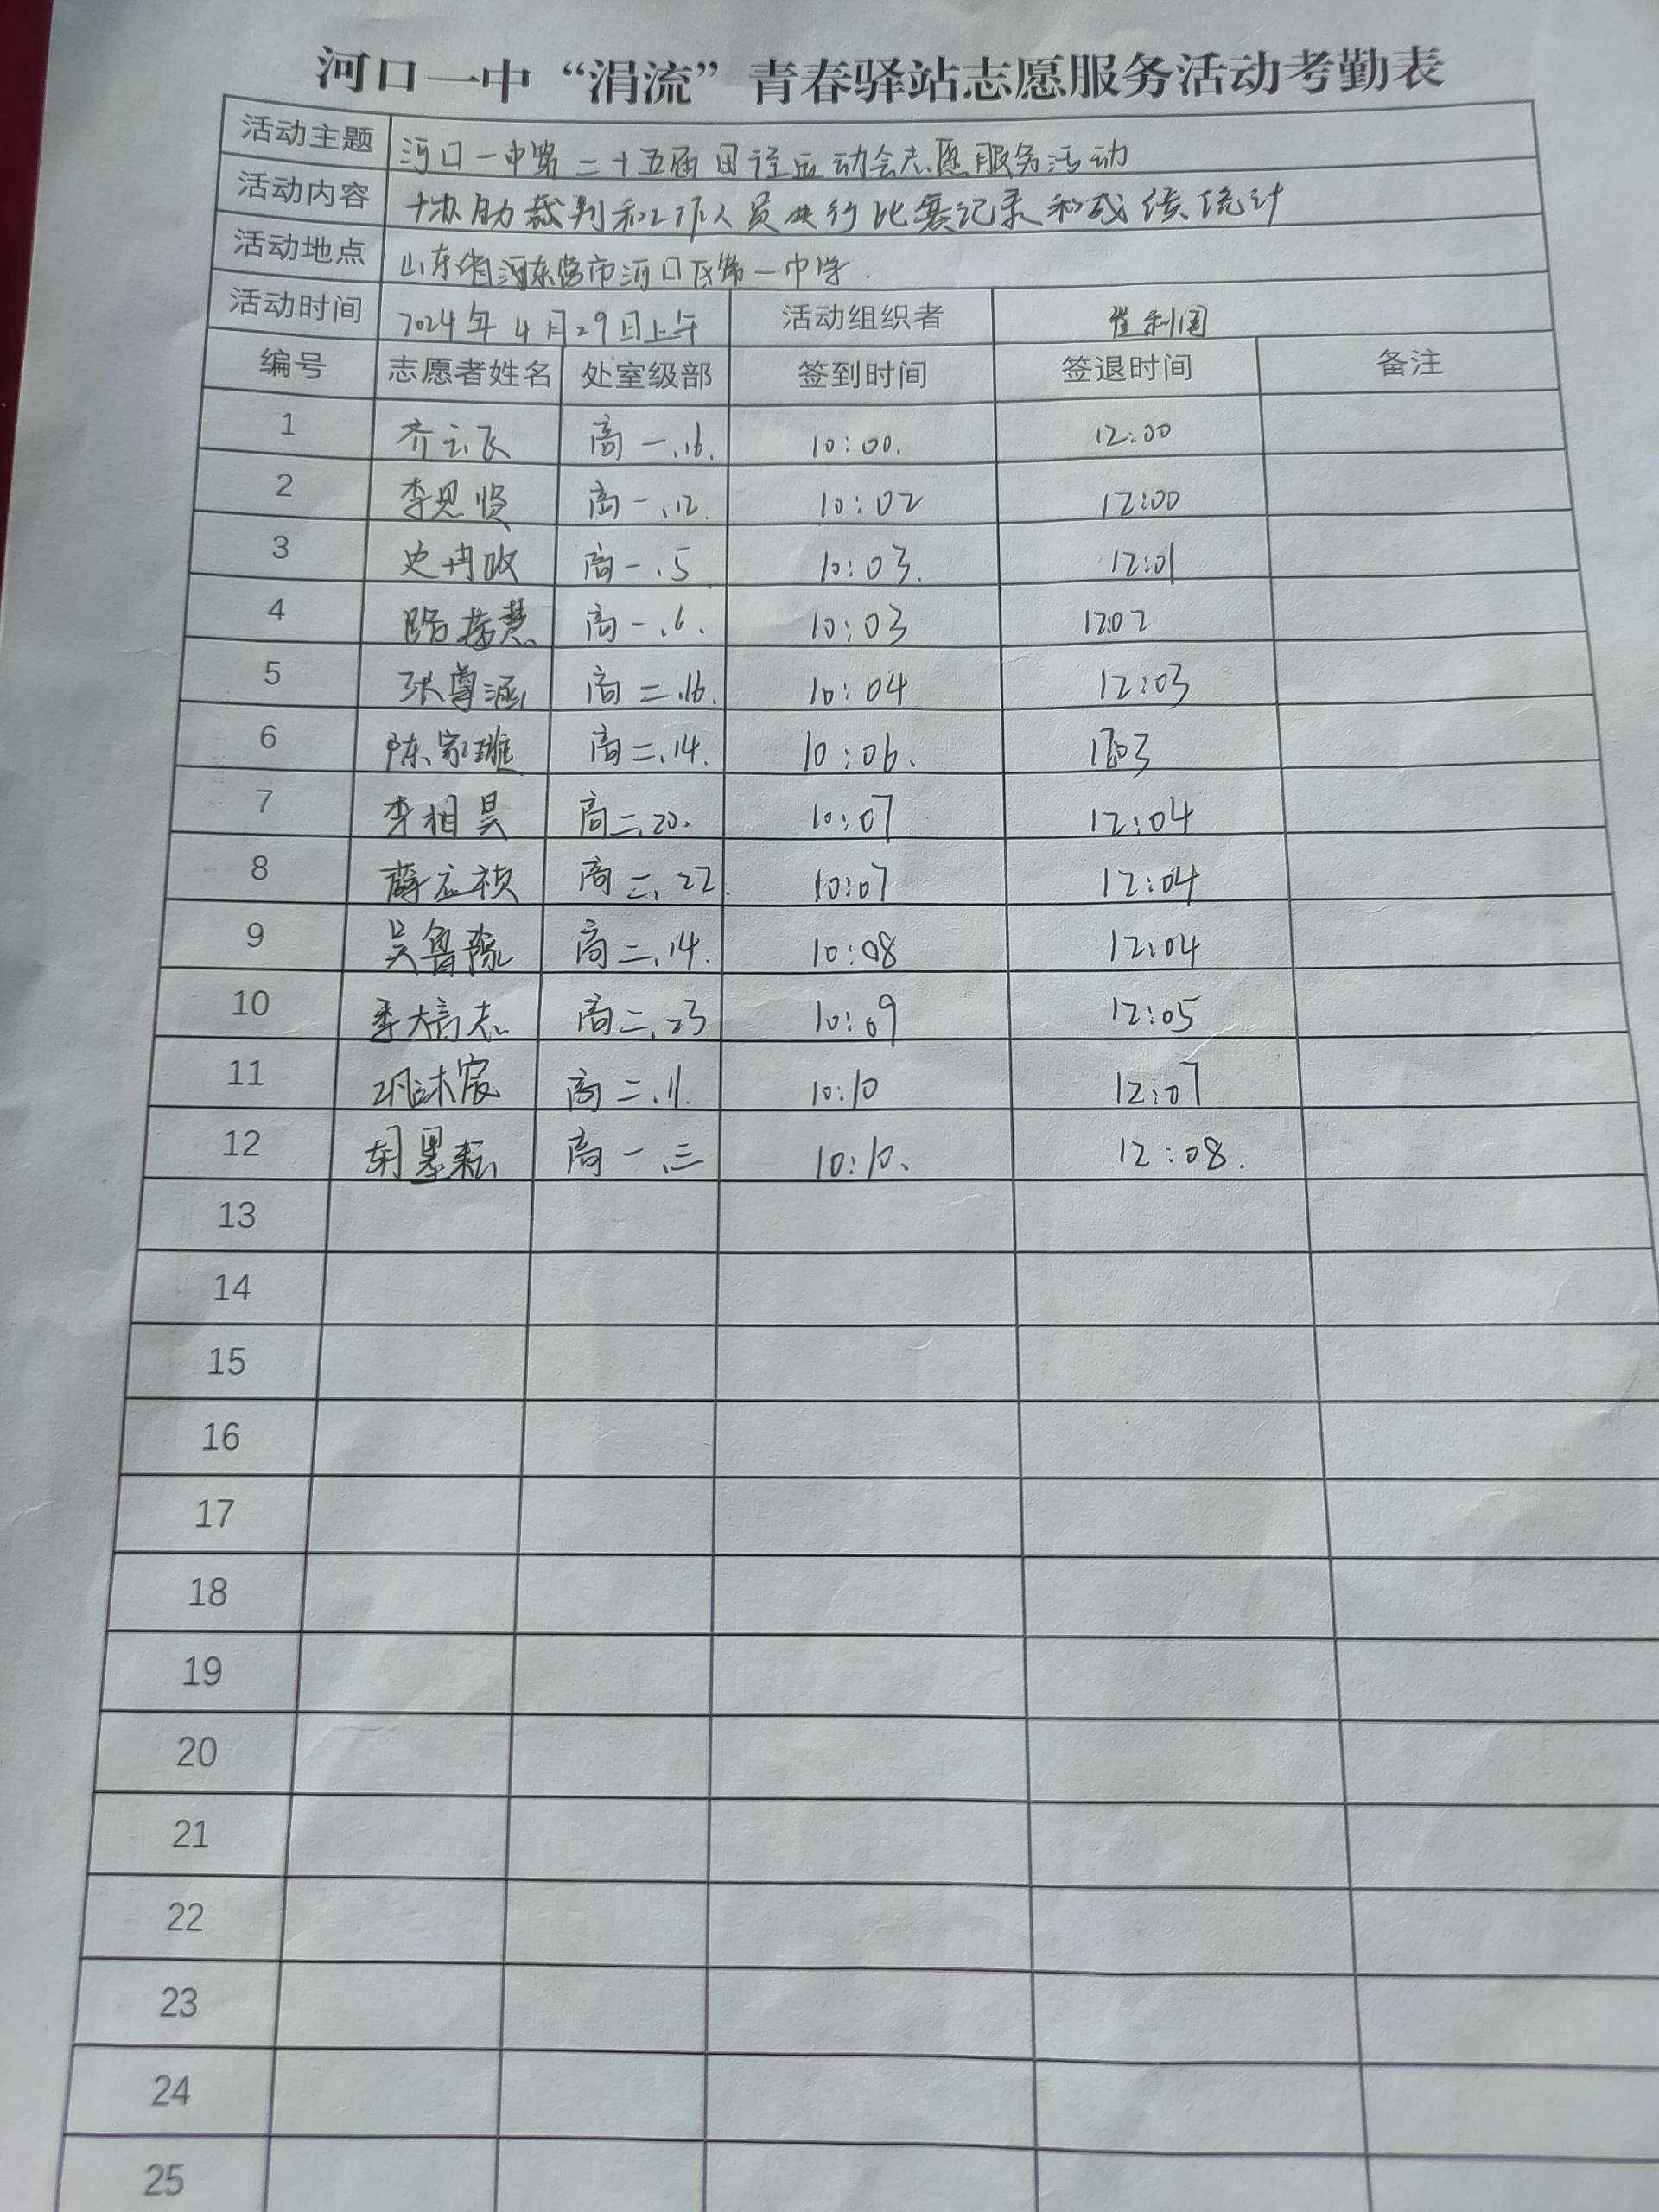 河口一中“涓流”青春驿站志愿服务活动考勤表
活动主题 河口一中第二十五届田径运动会志愿服务活动
活动内容 协助裁判和工作人员进行比赛记录和成绩统计
活动地点 山东省河东营市河口区第一中学.
活动时间 2024年4月29日上午 活动组织者 崔利国
编号 志愿者姓名 处室级部 签到时间 签退时间 备注
1 齐云飞 高一.16. 10:00. 12:00
2 李思贤 高一.12. 10:02 12:00
3 史冉政 高一.5 10:03. 12:01
4 路若慧 高一.6. 10:03 12:02
5 张尊涵 高二.16. 10:04 12:03
6 陈家 高二.14. 10:06. 12:03
7 李相昊 高二.20. 10:07 12:04
8 薛应祯 高二.22. 10:07 12:04
9 吴鲁豫 高二.14. 10:08 12:04
10 志 高二.23 10:09 12:05
11 巩沐宸 高二.11. 10:10 12:07
12 胡墨耘 高一.三 10:10. 12:08.
13
14
15
16
17
18
19
20
21
22
23
24
25